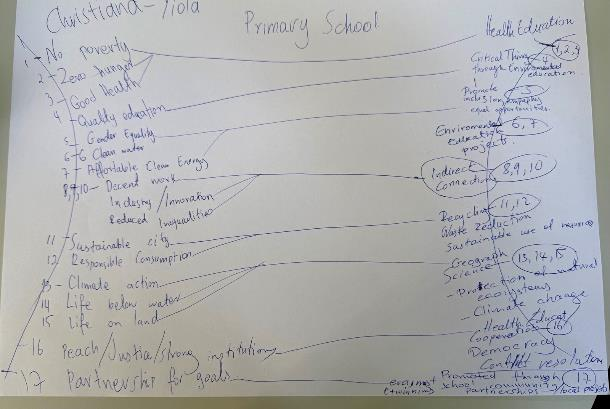 Christiana - Yiola
Primary School
1 - No poverty
2 - Zero hunger
3 - Good Health
4 Quality education
5 - Gender Equality
6 - 6 Clean water
7 - Affordable Clean Energy
8,9,10 - Decend work
Industry / Innovation
Reduced Inequalities
11 - Sustainable city
12 Responsible Consumption
13 - Climate action
14 Life below water
15 Life on land
16 Peach Justia/strong institutions
17 Partnership for goals
Health Education
1,2,3
Critical Think
through Enviromental
education
4
Promote
inclusion
equal opportunities.
5
Enviromental
education
projects.
6,7
Indirect
Connections
8,9,10
Recycling
Waste Reduction
11,12
Sustainable use of resources
Geography
Science
13,14,15
- Protection of natural
ecosystems
- Climate change
Health Educat
Cooperation
16
Democracy
Conflict resolution
Promoted through
school community
partnerships - local projects
17